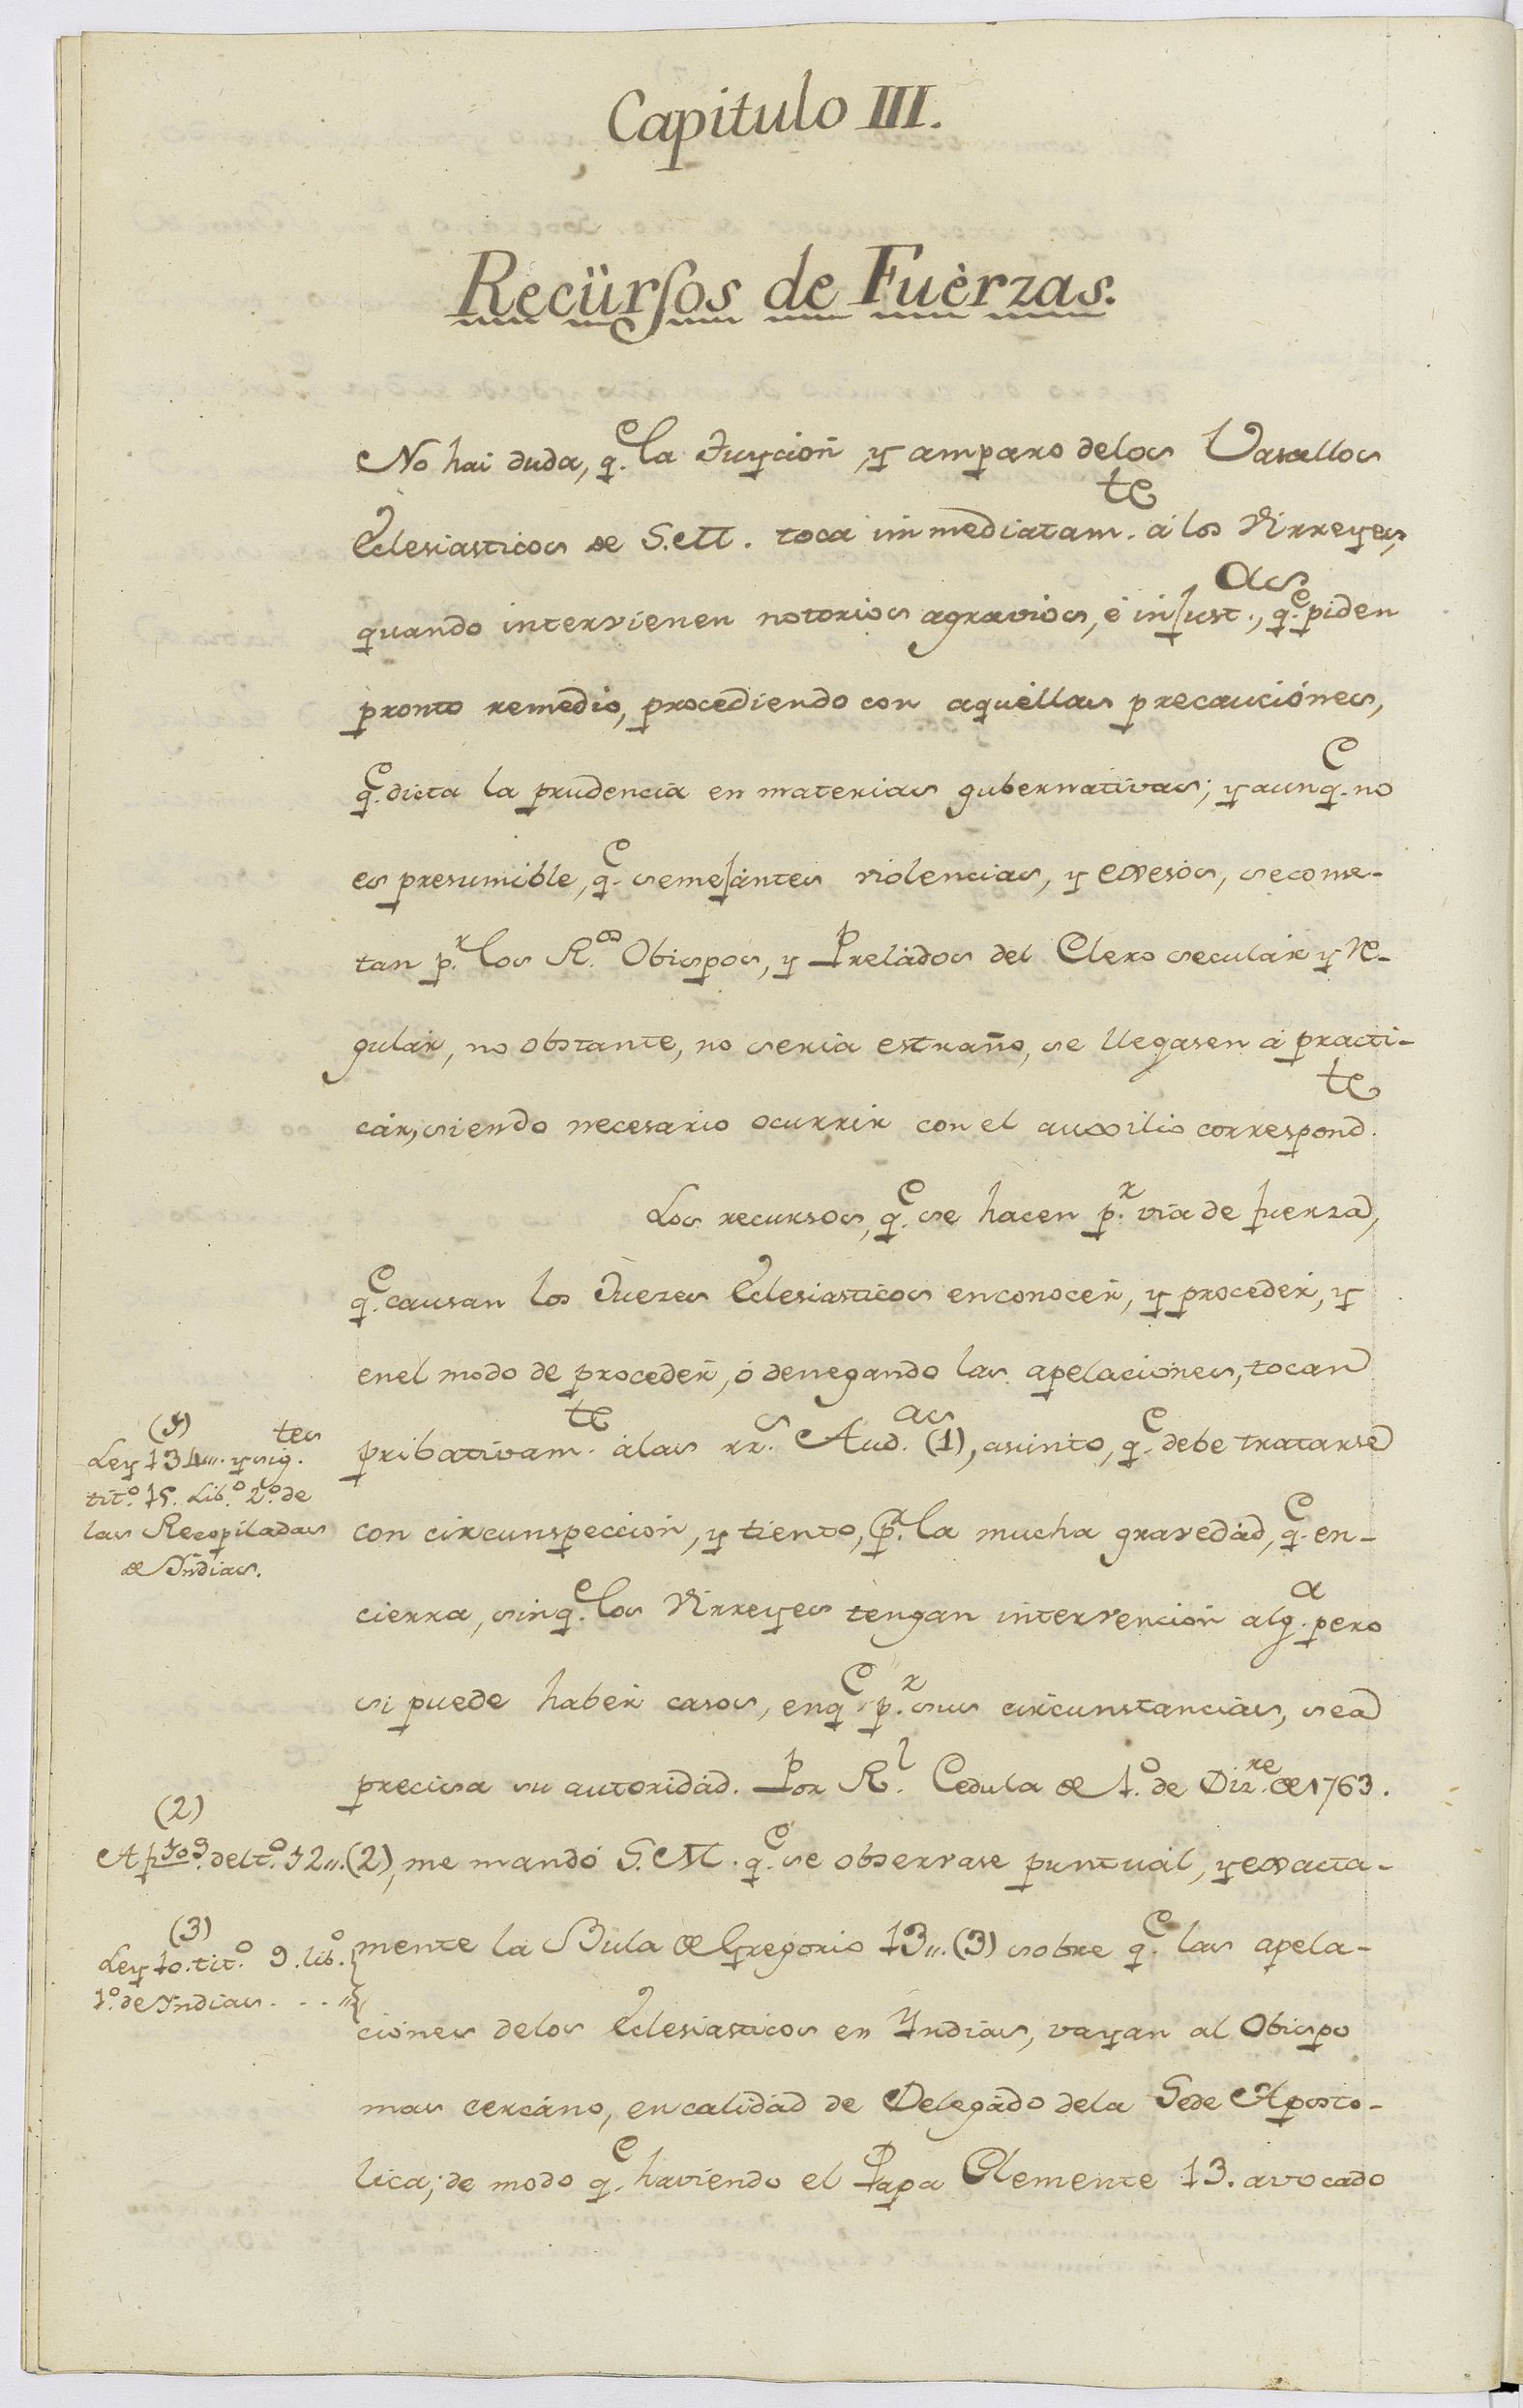 Capitulo III.
Recürsos de Fuèrzas.
No hai duda, q.e la Tuycion, y amparo delos Vasallos
Eclesiasticos de S.M. toca immediatam.te á los Virreyes,
quando intervienen notorios agravios, é injust.as, q.e piden
pronto remedio, procediendo con aquellas precauciónes,
q.e dicta la prudencia en materias gubernativas; y aunq.e no
es presumible, q.e semejantes violencias, y exesos, se come-
tan p.r los R.os Obispos, y Prelados del Clero secular y Re-
gular, no obstante, no seria estraño, se llegasen á practi-
car, siendo necesario ocurrir con el auxilio correspond.te
Los recursos, q.e se hacen p.r via de fuerza,
q.e causan los Juezes Eclesiasticos en conocer, y proceder, y
enel modo de proceder, ó denegando las apelaciones, tocan
pribativam.te álas rr.s Aud.as (1), asunto, q.e debe tratarse
(1)
Ley 134,,. y sig.tes
tit.o 15. Lib.o 2.o de
las Recopiladas
de Indias.
con circunspeccion, y tiento, p.r la mucha gravedad, q.e en-
cierra, sinq.e los Virreyes tengan intervencion alg.a pero
si puede haber casos, enq.e p.r sus circunstancias, sea
precisa su autoridad. Por R.l Cedula de 1.o de Diz.re de 1763.
(2)
Ap.too delt.o 12,,.
(2), me mandó S.M. q.e se observase puntual, y exacta-
(3)
Ley 10. tit.o 9. lib.o
1.o de Indias. . . ,,
mente la Bula de Gregorio 13,,. (3) sobre q.e las apela-
ciones delos Eclesiasticos en Yndias, vayan al Obispo
mas cercáno, en calidad de Delegádo dela Sede Aposto-
lica; de modo q.e haviendo el Papa Clemente 13. avocado